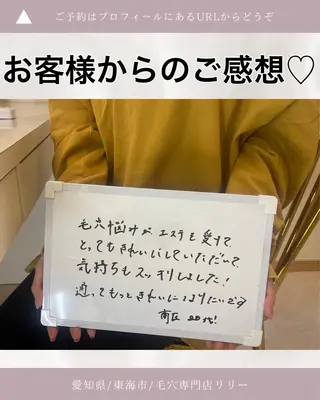 ご予約はプロフィールにあるURLからどうぞ
お客様からのご感想♡
毛穴悩みが、エステを受けて、
とってもきれいにしていただいて、
気持ちもスッキリしました!
通ってもっときれいになりたいです
南区 20代!
愛知県/東海市/毛穴専門店リリー